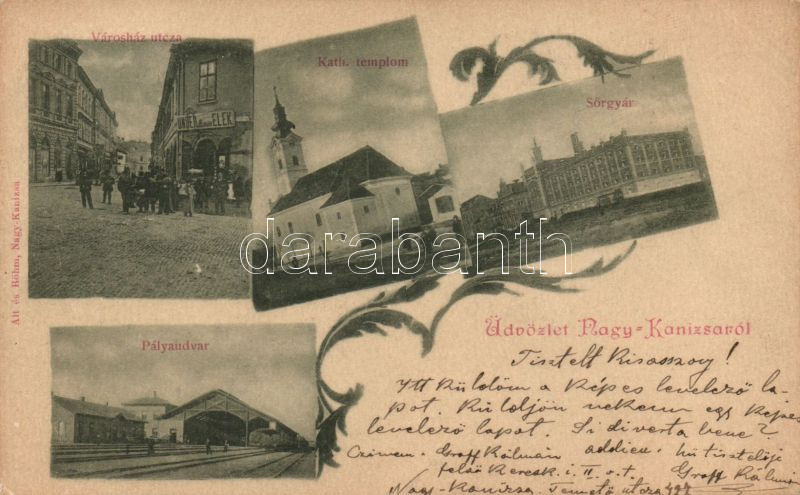 Városház utcza
Kath. templom
Sörgyár
ELEK
Alt és Böhm, Nagy-Kanizsa
darabanth.com
Üdvözlet Nagy-Kanizsaról
Pályaudvar
Tisztelt Kisasszony!
Itt küldöm a képes levelező la-
pot. Küldjön nekem egy képes
levelező lapot. Si diverta bene?
Czimem. Groff Kálmán addieu.
felső keresk. i. II. o. t. Groff Kálmán
Nagy-Kanizsa. Temető utcza